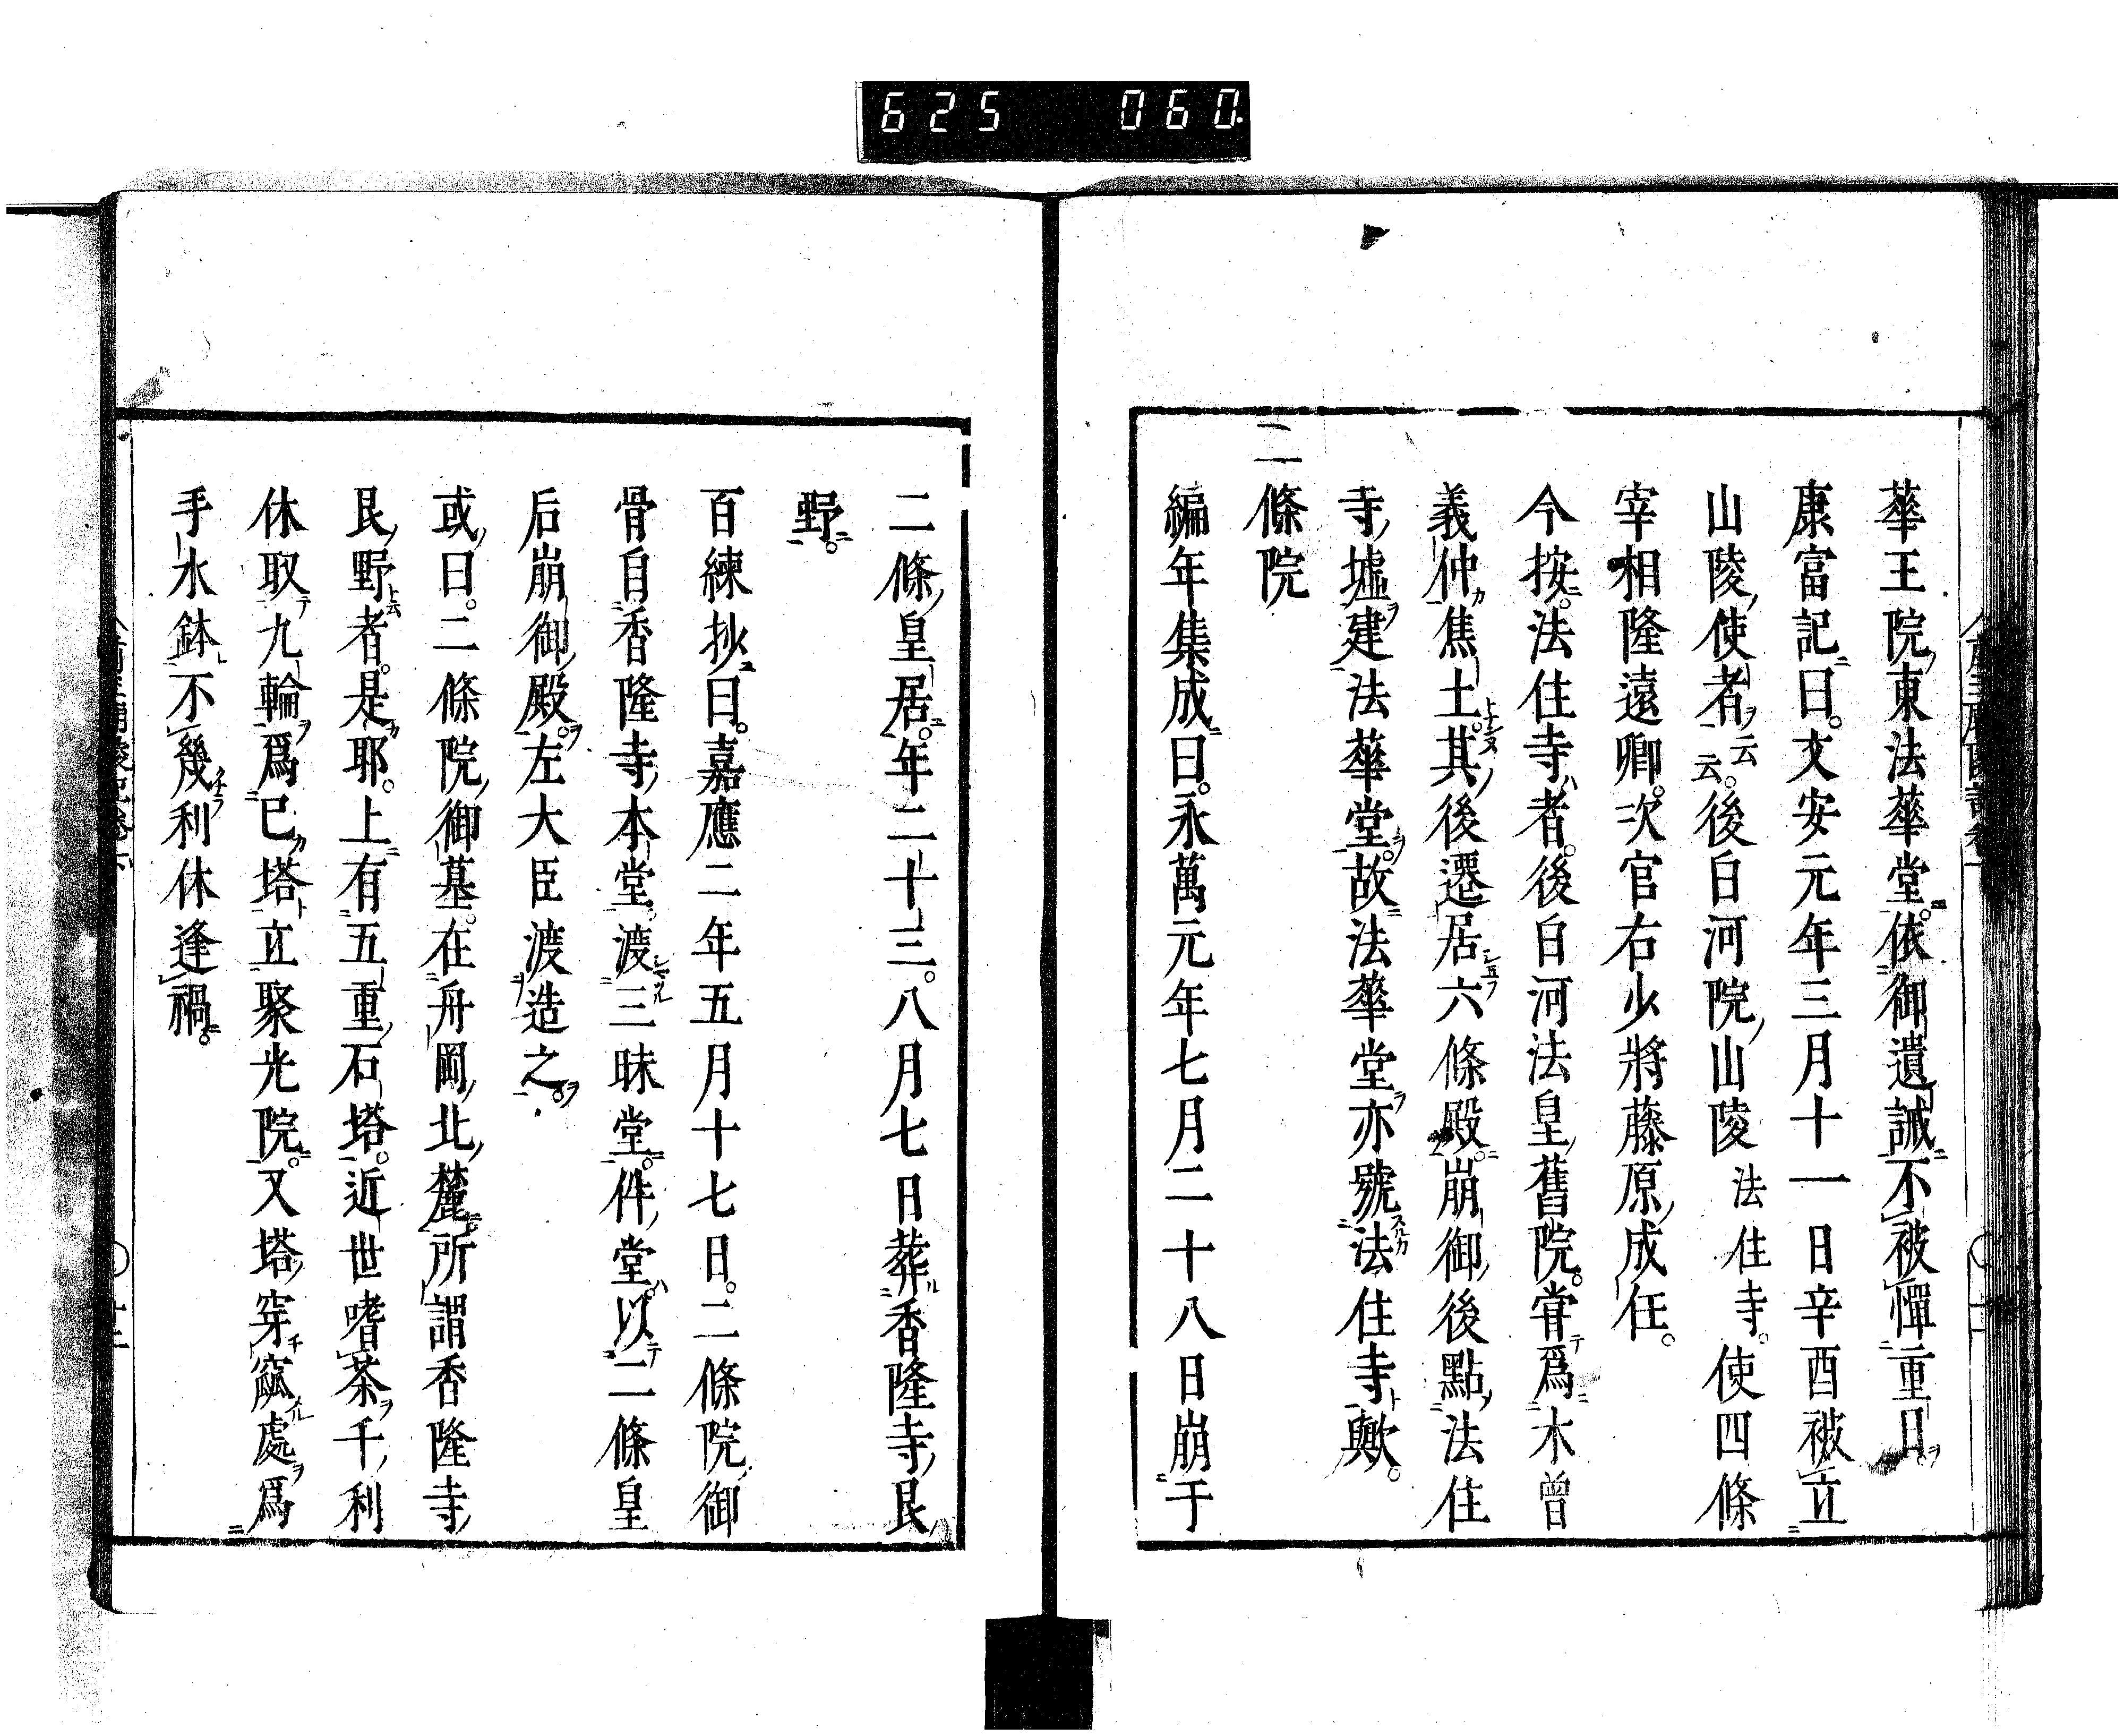 625 060
華王院東法華堂依御遺誡不被憚重日
康富記曰文安元年三月十一日辛酉被立
山陵使者云云後白河院山陵法住寺使四條
宰相隆遠卿次官右少將藤原成任
今按法住寺者後白河法皇舊院嘗爲木曾
義仲焦土其後遷居六條殿崩御後點法住
寺墟建法華堂故法華堂亦號法住寺歟
二條院
編年集成曰永萬元年七月二十八日崩于
二條皇居年二十三八月七日葬香隆寺艮
野
百練抄曰嘉應二年五月十七日二條院御
骨自香隆寺本堂渡三昧堂件堂以二條皇
后崩御殿左大臣渡造之
或曰二條院御墓在舟岡北麓所謂香隆寺
艮野者是耶上有五重石塔近世嗜茶千利
休取九輪爲己塔立聚光院又塔穿窳處爲
手水鉢不幾利休逢禍